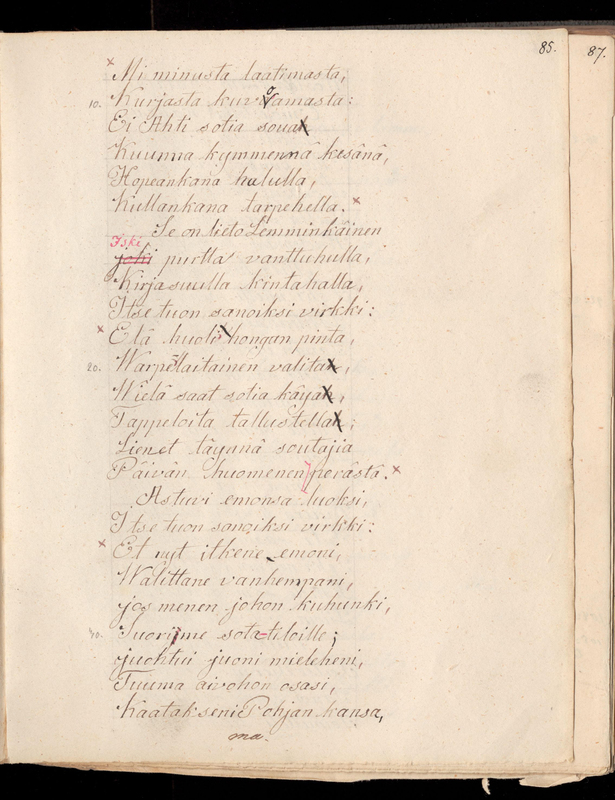 85.
87.
× Mi minusta laatimasta,
10. Kurjasta kuvoamasta:
Ei Ahti sotia soua
Kuunna kymmennä kesänä,
Hopeankana halulla,
Kullankana tarpehella. ×
Se on lieto Lemminkäinen
Iski
johi purtta vanttuhulla,
Kirjasuulla kintahalla,
Itse tuon sanoiksi virkki:
× Elä huoli hongan pinta,
20. Warpelaitainen valita,
Wielä saat sotia käyä,
Tappeloita tallustella;
Lienet täynnä soutajia
Päivän huomenen perästä. ×
Astuvi emonsa luoksi,
Itse tuon sanoiksi virkki:
× Et nyt itkene emoni,
Walittane vanhempani,
jos menen johon kuhunki,
30. Suorime sota-tiloille;
juohtui juoni mieleheni,
Tuuma aivohon osasi,
Kaatakseni Pohjan kansa,
ma.